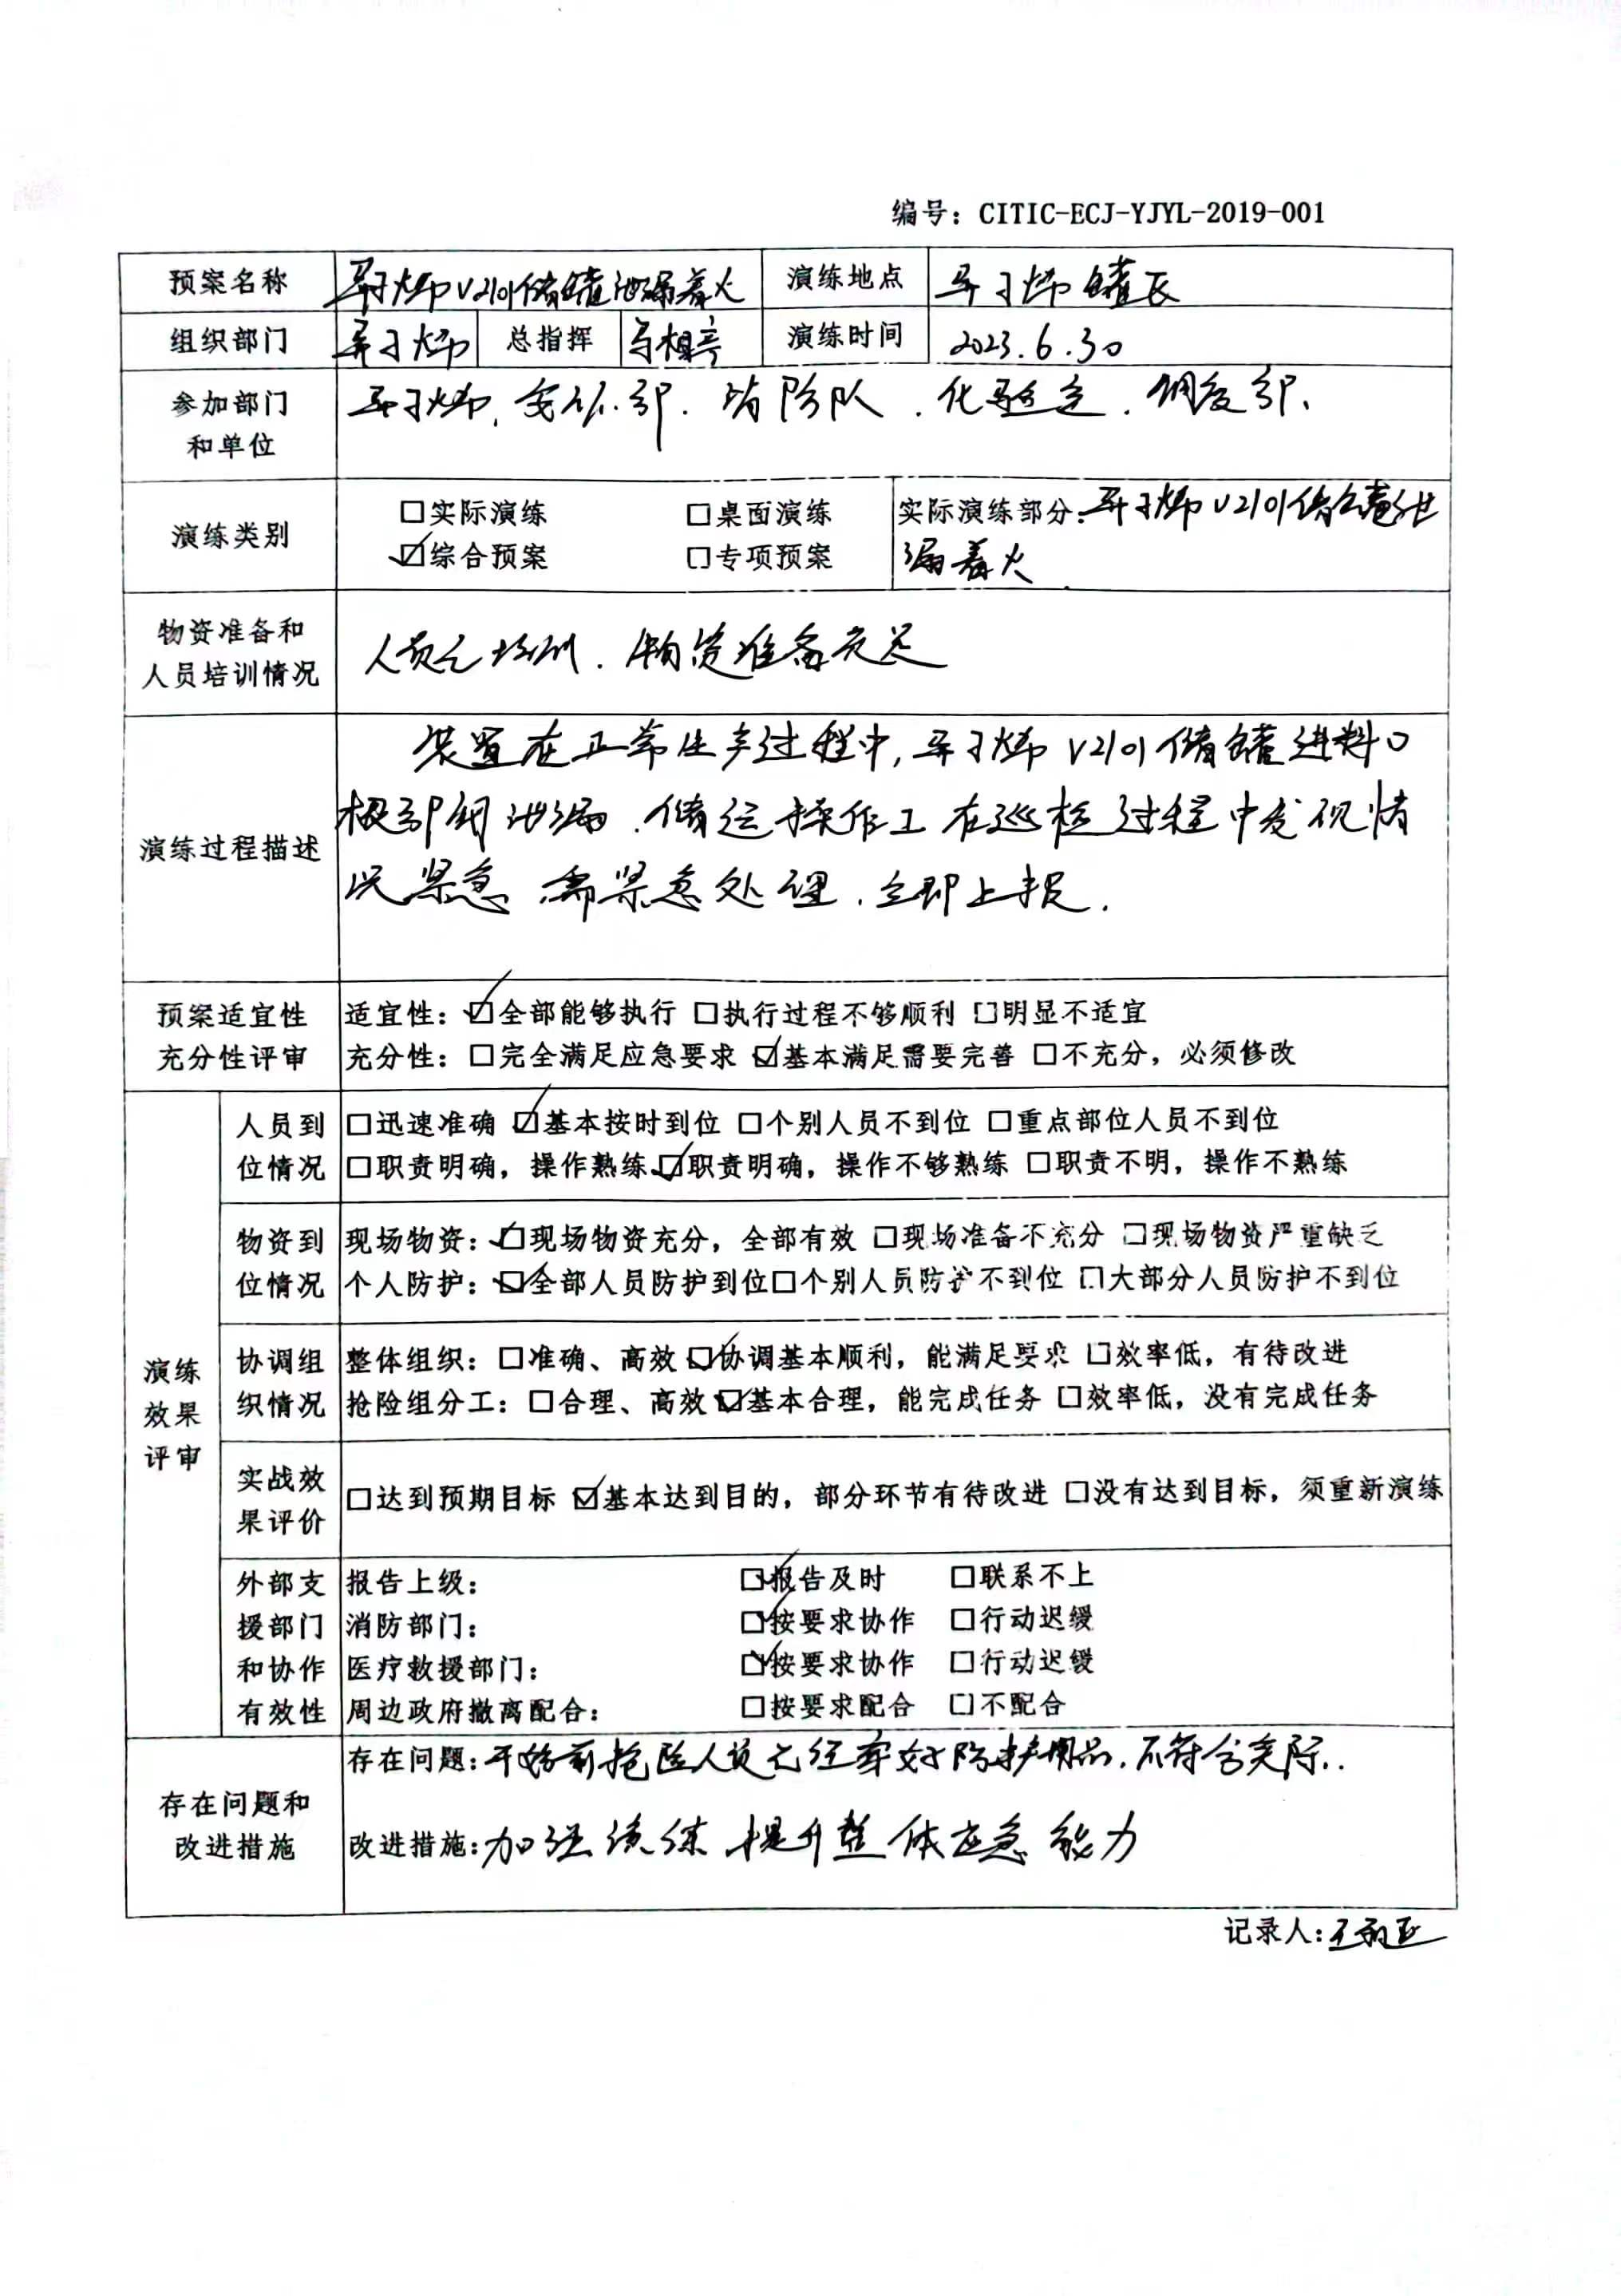 编号：CITIC-ECJ-YJYL-2019-001
预案名称 异丁烯V2101储罐泄漏着火 演练地点 异丁烯罐区
组织部门 异丁烯 总指挥 马相亭 演练时间 2023.6.30
参加部门
和单位
异丁烯、安环部、消防队、化验室、调度部、
演练类别
□实际演练 □桌面演练
☑综合预案 □专项预案
实际演练部分：异丁烯V2101储罐泄
漏着火
物资准备和
人员培训情况
人员已培训、物资准备充足
演练过程描述
装置在正常生产过程中，异丁烯V2101储罐进料口
根部阀泄漏、储运操作工在巡检过程中发现情
况紧急 需紧急处理、立即上报.
预案适宜性
充分性评审
适宜性：☑全部能够执行 □执行过程不够顺利 □明显不适宜
充分性：□完全满足应急要求 ☑基本满足需要完善 □不充分，必须修改
演练
效果
评审
人员到
位情况
□迅速准确 ☑基本按时到位 □个别人员不到位 □重点部位人员不到位
□职责明确，操作熟练 ☑职责明确，操作不够熟练 □职责不明，操作不熟练
物资到
位情况
现场物资：☑现场物资充分，全部有效 □现场准备不充分 □现场物资严重缺乏
个人防护：☑全部人员防护到位 □个别人员防护不到位 □大部分人员防护不到位
协调组
织情况
整体组织：□准确、高效 ☑协调基本顺利，能满足要求 □效率低，有待改进
抢险组分工：□合理、高效 ☑基本合理，能完成任务 □效率低，没有完成任务
实战效
果评价
□达到预期目标 ☑基本达到目的，部分环节有待改进 □没有达到目标，须重新演练
外部支
援部门
和协作
有效性
报告上级： ☑报告及时 □联系不上
消防部门： ☑按要求协作 □行动迟缓
医疗救援部门： ☑按要求协作 □行动迟缓
周边政府撤离配合： □按要求配合 □不配合
存在问题和
改进措施
存在问题：开始前抢险人员已经穿好防护用品、不符合实际..
改进措施：加强演练 提升整体应急能力
记录人：王